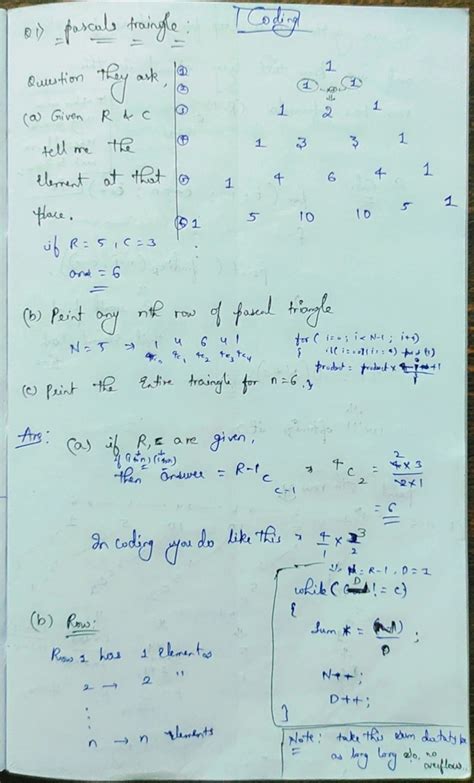 Coding
Q1) pascals traingle :
Question they ask,
(a) Given R & C
tell me the
element at that
place.
if R = 5, C = 3
ans = 6
① 1
② 1 1
③ 1 2 1
④ 1 3 3 1
⑤ 1 4 6 4 1
⑥ 1 5 10 10 5 1
(b) Print any nth row of pascal triangle
N = 5 → 1 4 6 4 1
4c0 4c1 4c2 4c3 4c4
for( i=0; i<N-1; i++)
product = product x
(c) Print the Entire traingle for n=6.
Ans: (a) if R, C are given,
then answer = R-1 C C-1 → 4C2 = 4x3
2x1
= 6
In coding you do like this → 4/1 x 3/2
N = R-1, D = 1
while( D != C)
{
Sum * = (N)
D ;
N--;
D++;
}
(b) Row:
Row 1 has 1 Elements
2 → 2 "
n → n elements
Note: take this sum datatype
as long long also, no
overflow